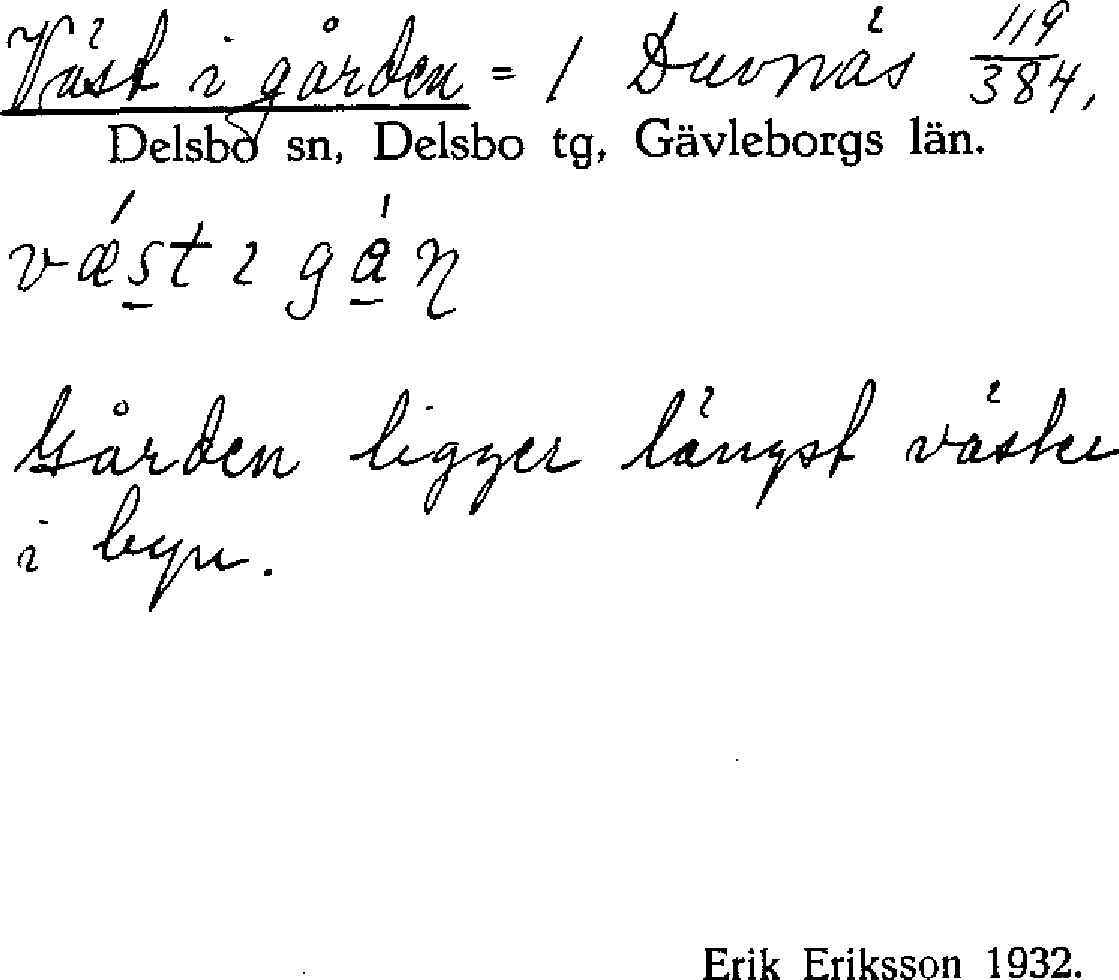 Väst i gården = 1 Duvnäs 119/384,
Delsbo sn, Delsbo tg, Gävleborgs län.
væ´st ɩ gá̱ṇ
Gården ligger längst väster
i byn.
Erik Eriksson 1932.